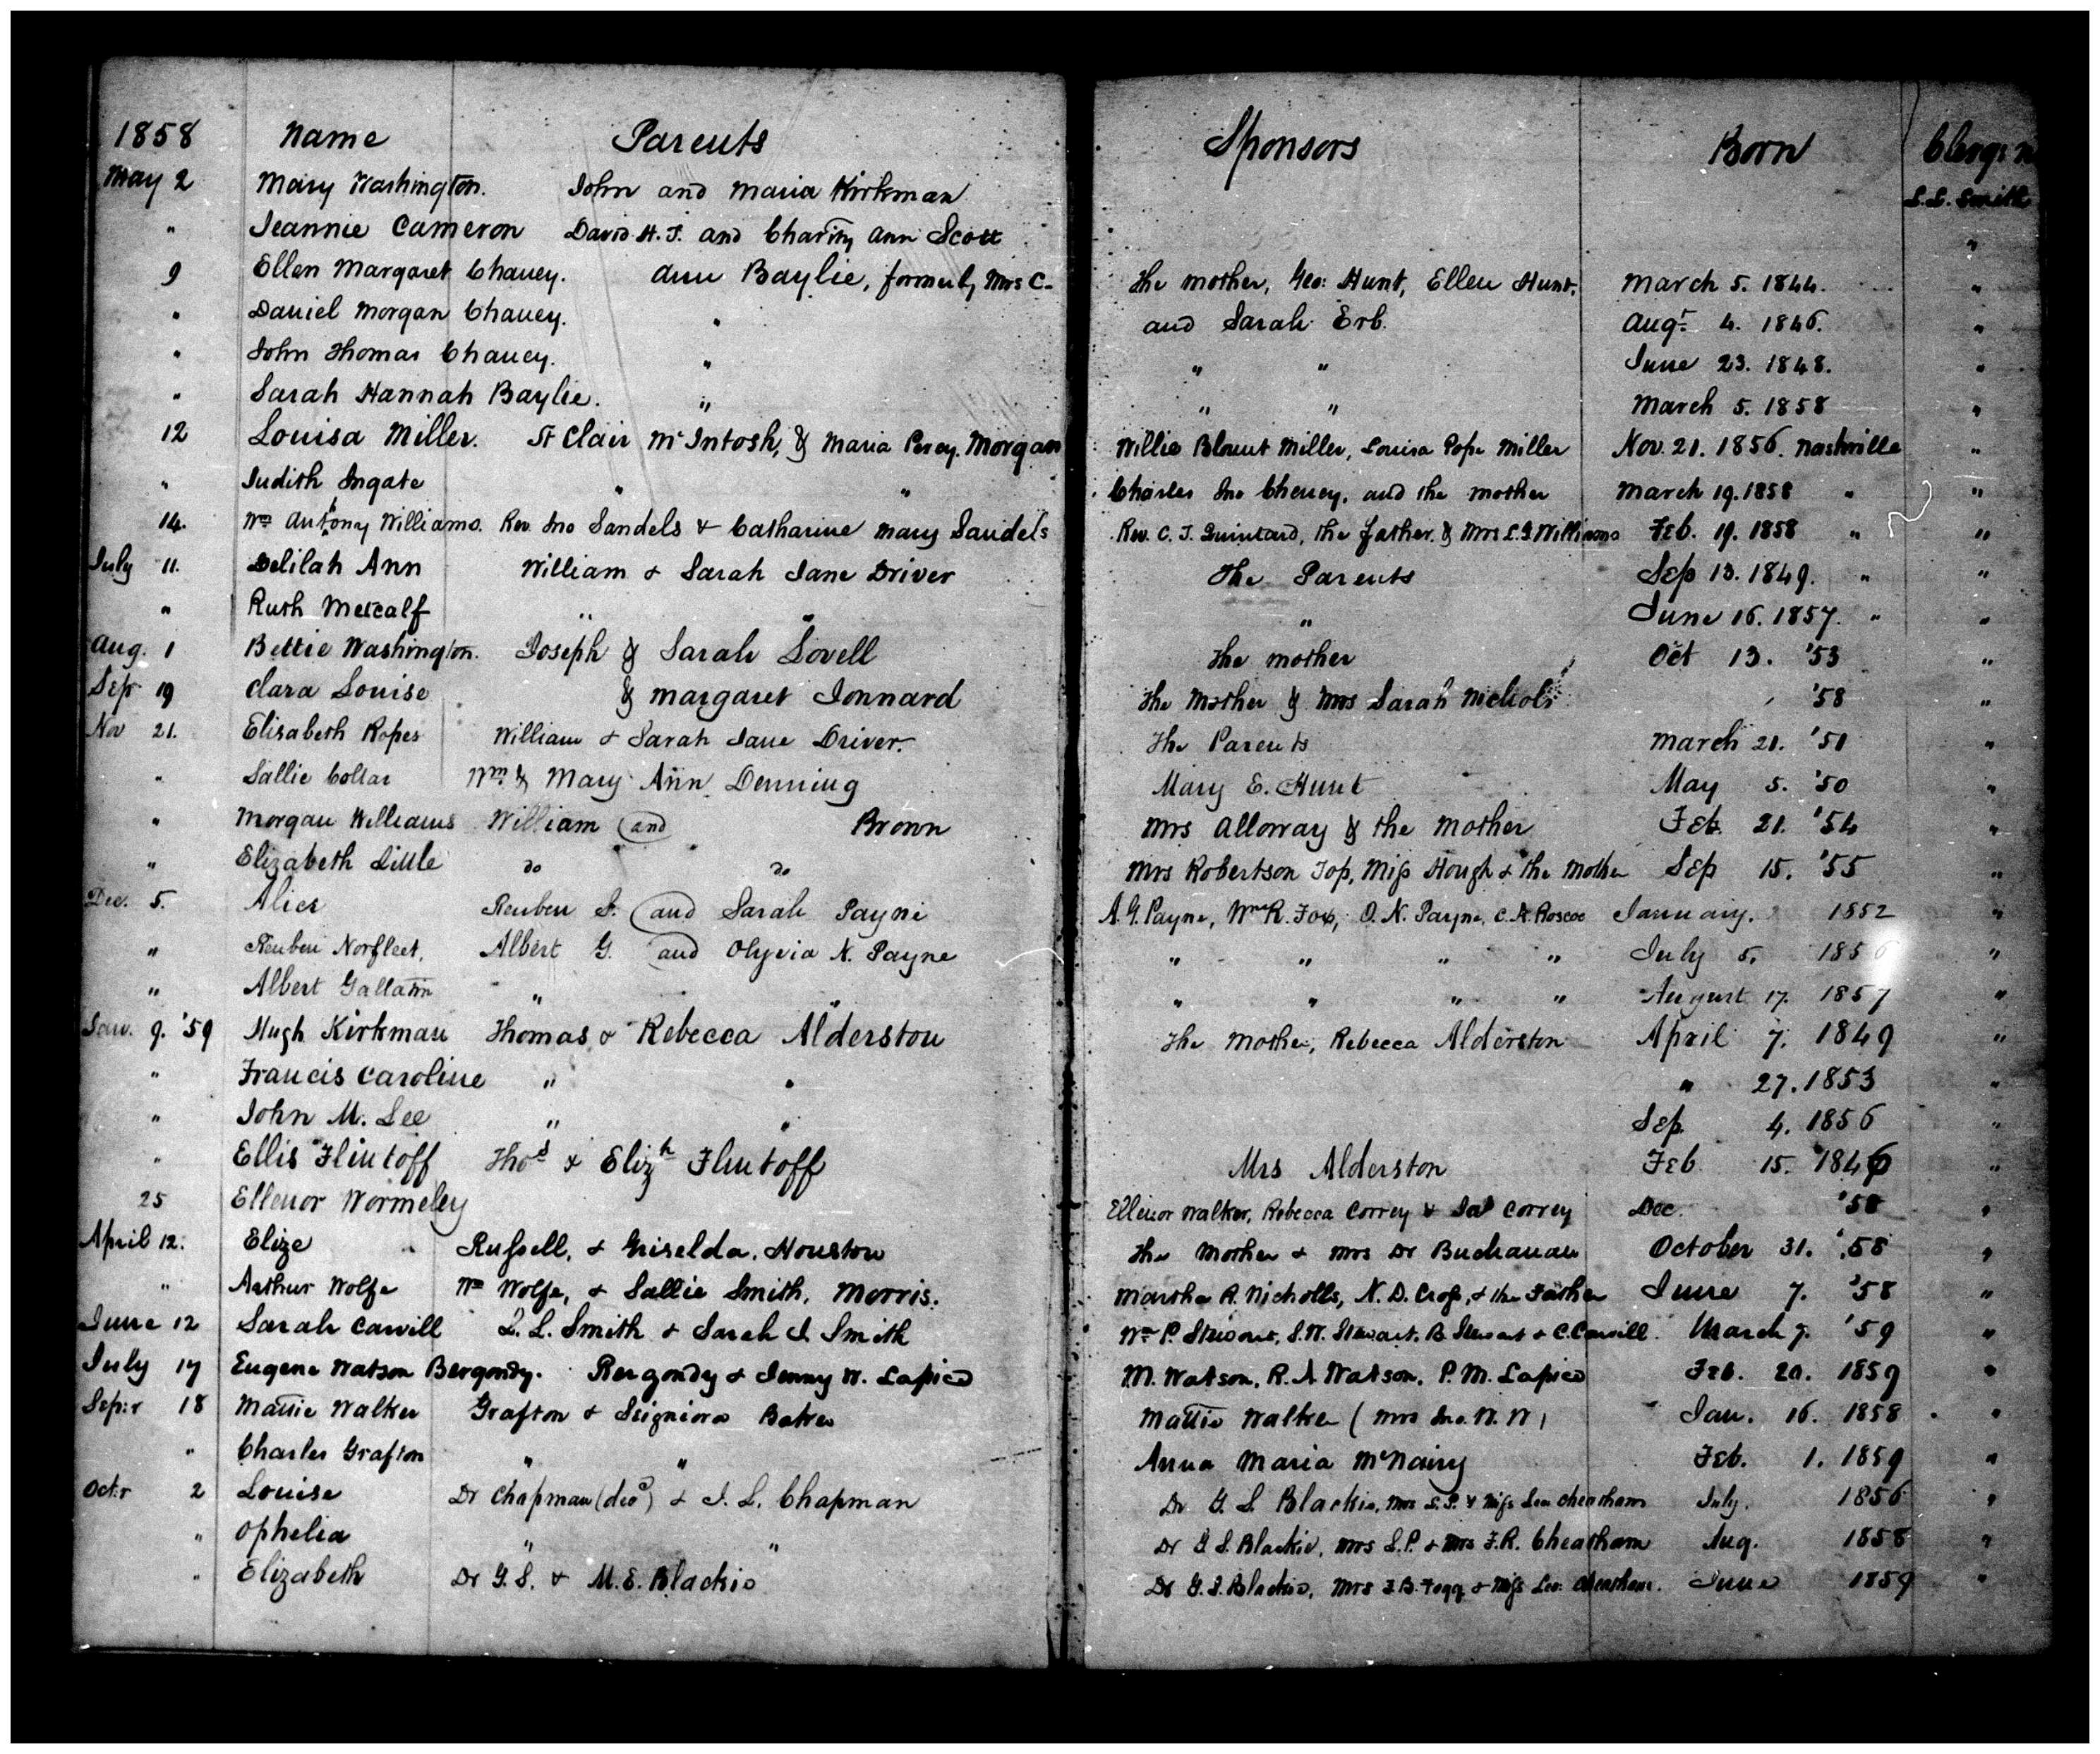 1858 Name Parents Sponsors Born
May 2 Mary Washington. John and Maria Kirkman L.L. Smith
" Jeannie Cameron David H. T. and Charity Ann Scott "
9 Ellen Margaret Chaney. Ann Baylie, formerly Mrs C- The mother, Geo: Hunt, Ellen Hunt, March 5. 1844. "
" Daniel Morgan Chaney. " and Sarah Erb. Augt 4. 1846. "
" John Thomas Chaney. " " " June 23. 1848. "
" Sarah Hannah Baylie. " " " March 5. 1858 "
12 Louisa Miller. St Clair McIntosh, & Maria Percy. Morgan Willie Blount Miller, Louisa Pope Miller Nov. 21. 1856. Nashville "
" Judith Ingate " " Charles Jno Cheney, and the mother March 19. 1858 " "
14. Wm Anthony Williams. Rev. Jno Sandels & Catharine Mary Sandels Rev. C. T. Quintard, the father & Mrs L.G. Williams Feb. 19. 1858 " "
July 11. Delilah Ann William & Sarah Jane Driver The Parents Sep 13. 1849. " "
" Ruth Metcalf " " " June 16. 1857. " "
Aug. 1 Bettie Washington. Joseph & Sarah Lovell The mother Oct 13. '53 "
Sep 19 Clara Louise & Margaret Jonnard The Mother & Mrs Sarah Nichols '58 "
Nov 21. Elisabeth Ropes William & Sarah Jane Driver. The Parents March 21. '51 "
" Sallie Collar Wm & Mary Ann Denning Mary E. Hunt May 5. '50 "
" Morgan Williams William and Brown Mrs Alloway & the Mother Feb. 21. '54 "
" Elizabeth Little do do Mrs Robertson Top, Miss Hough & the Mother Sep 15. '55 "
Dec. 5. Alice Reuben S. and Sarah Payne A. G. Payne, Wm R. Fox, O. N. Payne, C. A. Roscoe January. 1852 "
" Reuben Norfleet. Albert G. and Olyvia N. Payne " " " " July 5. 1856 "
" Albert Gallatin " " " " " " August 17. 1857 "
Jan. 9. '59 Hugh Kirkman Thomas & Rebecca Alderston The Mother, Rebecca Alderston April 7. 1849 "
" Francis Caroline " " " 27. 1853 "
" John M. Lee " " Sep. 4. 1856 "
" Ellis Flintoff Thos & Elizh Flintoff Mrs Alderston Feb 15. 1846 "
25 Ellenor Wormeley Ellenor Walker, Rebecca Correy & Jas Correy Dec. '58 "
April 12. Elize Russell, & Griselda. Houston The Mother & Mrs Dr Buchanan October 31. '58 "
" Arthur Wolfe Wm Wolfe, & Sallie Smith, Morris. Martha R. Nicholls, N. D. Cross, & the Father June 7. '58 "
June 12 Sarah Carvill L. L. Smith & Sarah J. Smith Wm P. Stewart, S. W. Stewart, B. Stewart & C. Carvill. March 7. '59 "
July 17 Eugene Watson Bergondy. Bergondy & Jenny W. Lapice M. Watson, R. A Watson, P. M. Lapice Feb. 20. 1859 "
Sep:r 18 Mattie Walker Grafton & Seigniora Baker Mattie Walker (Mrs Jno. W. W) Jan. 16. 1858 "
" Charles Grafton " " Anna Maria McNairy Feb. 1. 1859 "
Oct:r 2 Louise Dr Chapman (decd) & J. L. Chapman Dr G. S. Blackie, Mrs L. P. & Miss Lou Cheatham July. 1856 "
" Ophelia " " Dr G. S. Blackie, Mrs L. P. & Mrs F. R. Cheatham Aug. 1858 "
" Elizabeth Dr G. S. & M. E. Blackie Dr G. S. Blackie, Mrs F. B. Fogg & Miss Lou: Cheatham. June 1859 "